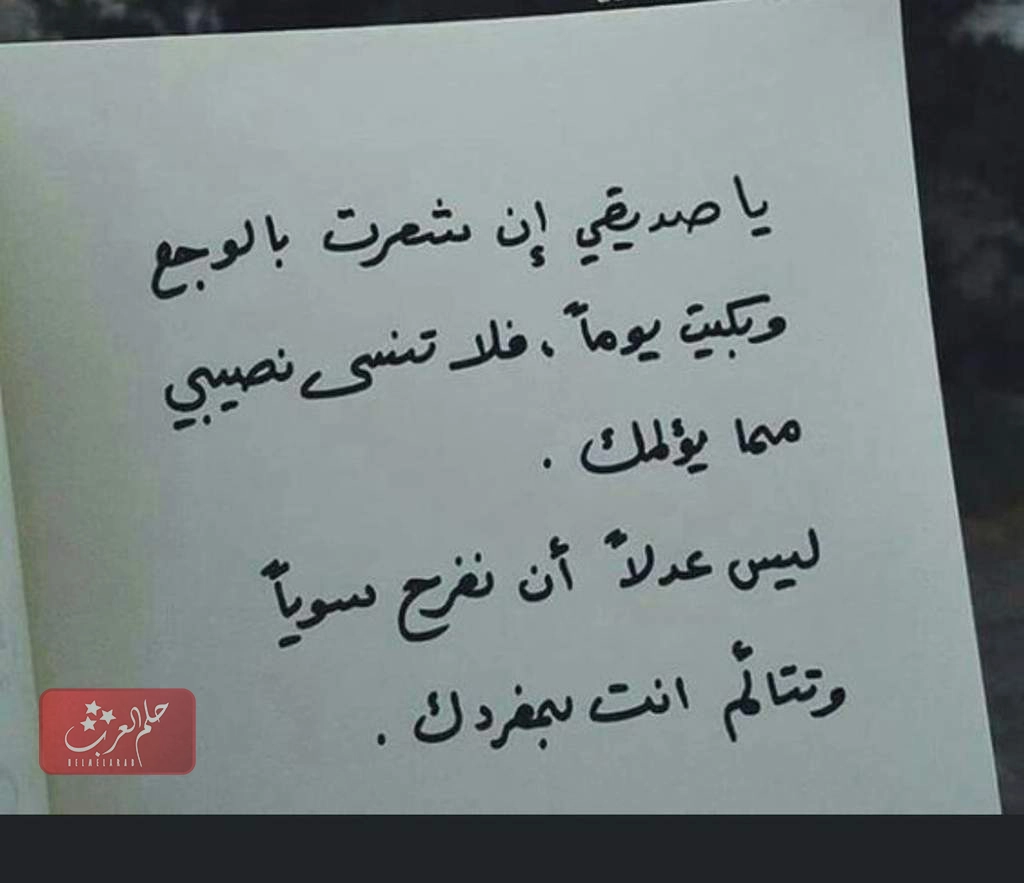 يا صديقي إن شعرت بالوجع
وبكيت يوماً، فلا تنسى نصيبي
مما يؤلمك .
ليس عدلاً أن نفرح سوياً
وتتألم انت بمفردك .
حلم العرب
HELMELARAB